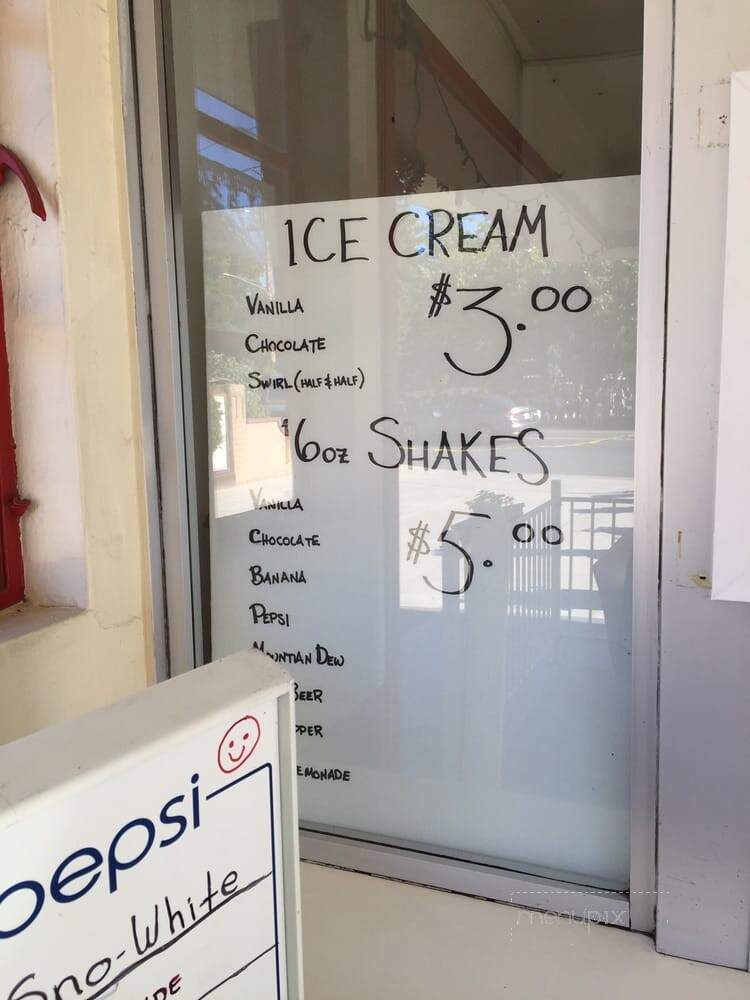 ICE CREAM
$3.00
VANILLA
CHOCOLATE
SWIRL (HALF & HALF)
16oz SHAKES
$5.00
VANILLA
CHOCOLATE
BANANA
PEPSI
MOUNTIAN DEW
BEER
PPER
EMONADE
pepsi
Sno-White
DE
menupix